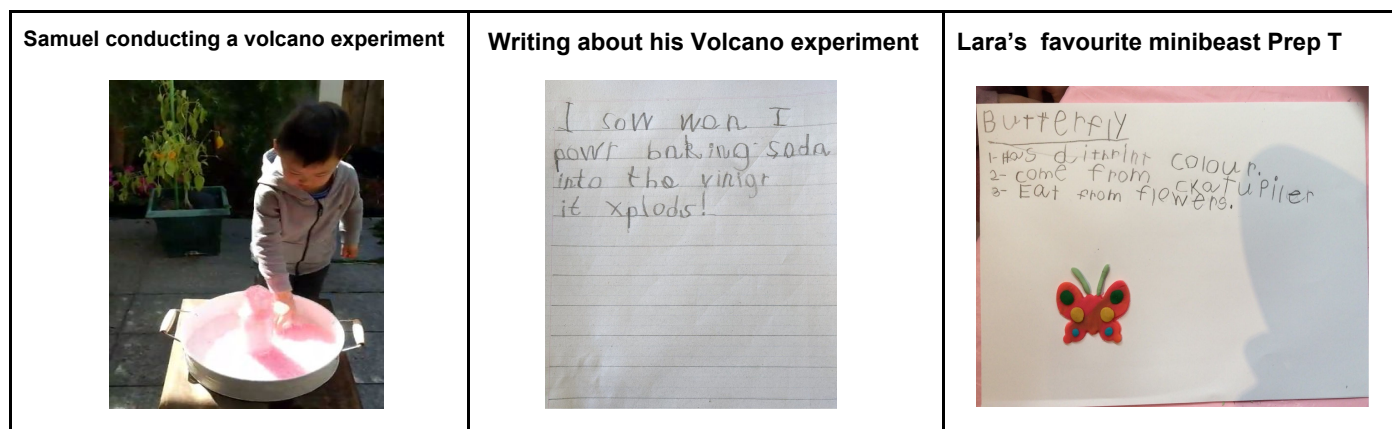 Samuel conducting a volcano experiment
Writing about his Volcano experiment
I sow wen I
powr baking soda
into the vinigr
it xplods!
Lara's favourite minibeast Prep T
Butterfly
1-Has ditrrint colour.
2- come from ckatupiler
3- Eat from flowers.